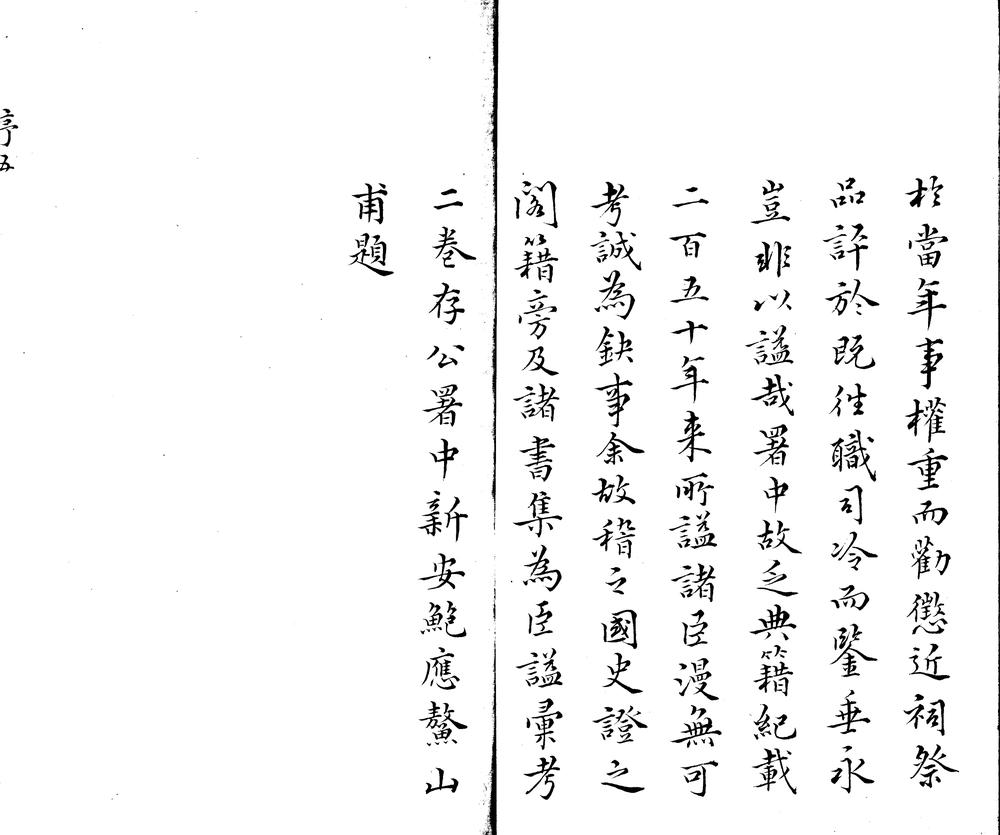 於當年事權重而勸懲近祠祭
品評於既往職司冷而鑒垂永
豈非以謚哉署中故乏典籍紀載
二百五十年来所謚諸臣漫無可
考誠為缺事余故稽之國史證之
閣籍旁及諸書集為臣謚彙考
二卷存公署中新安鮑應鰲山
甫題
序五